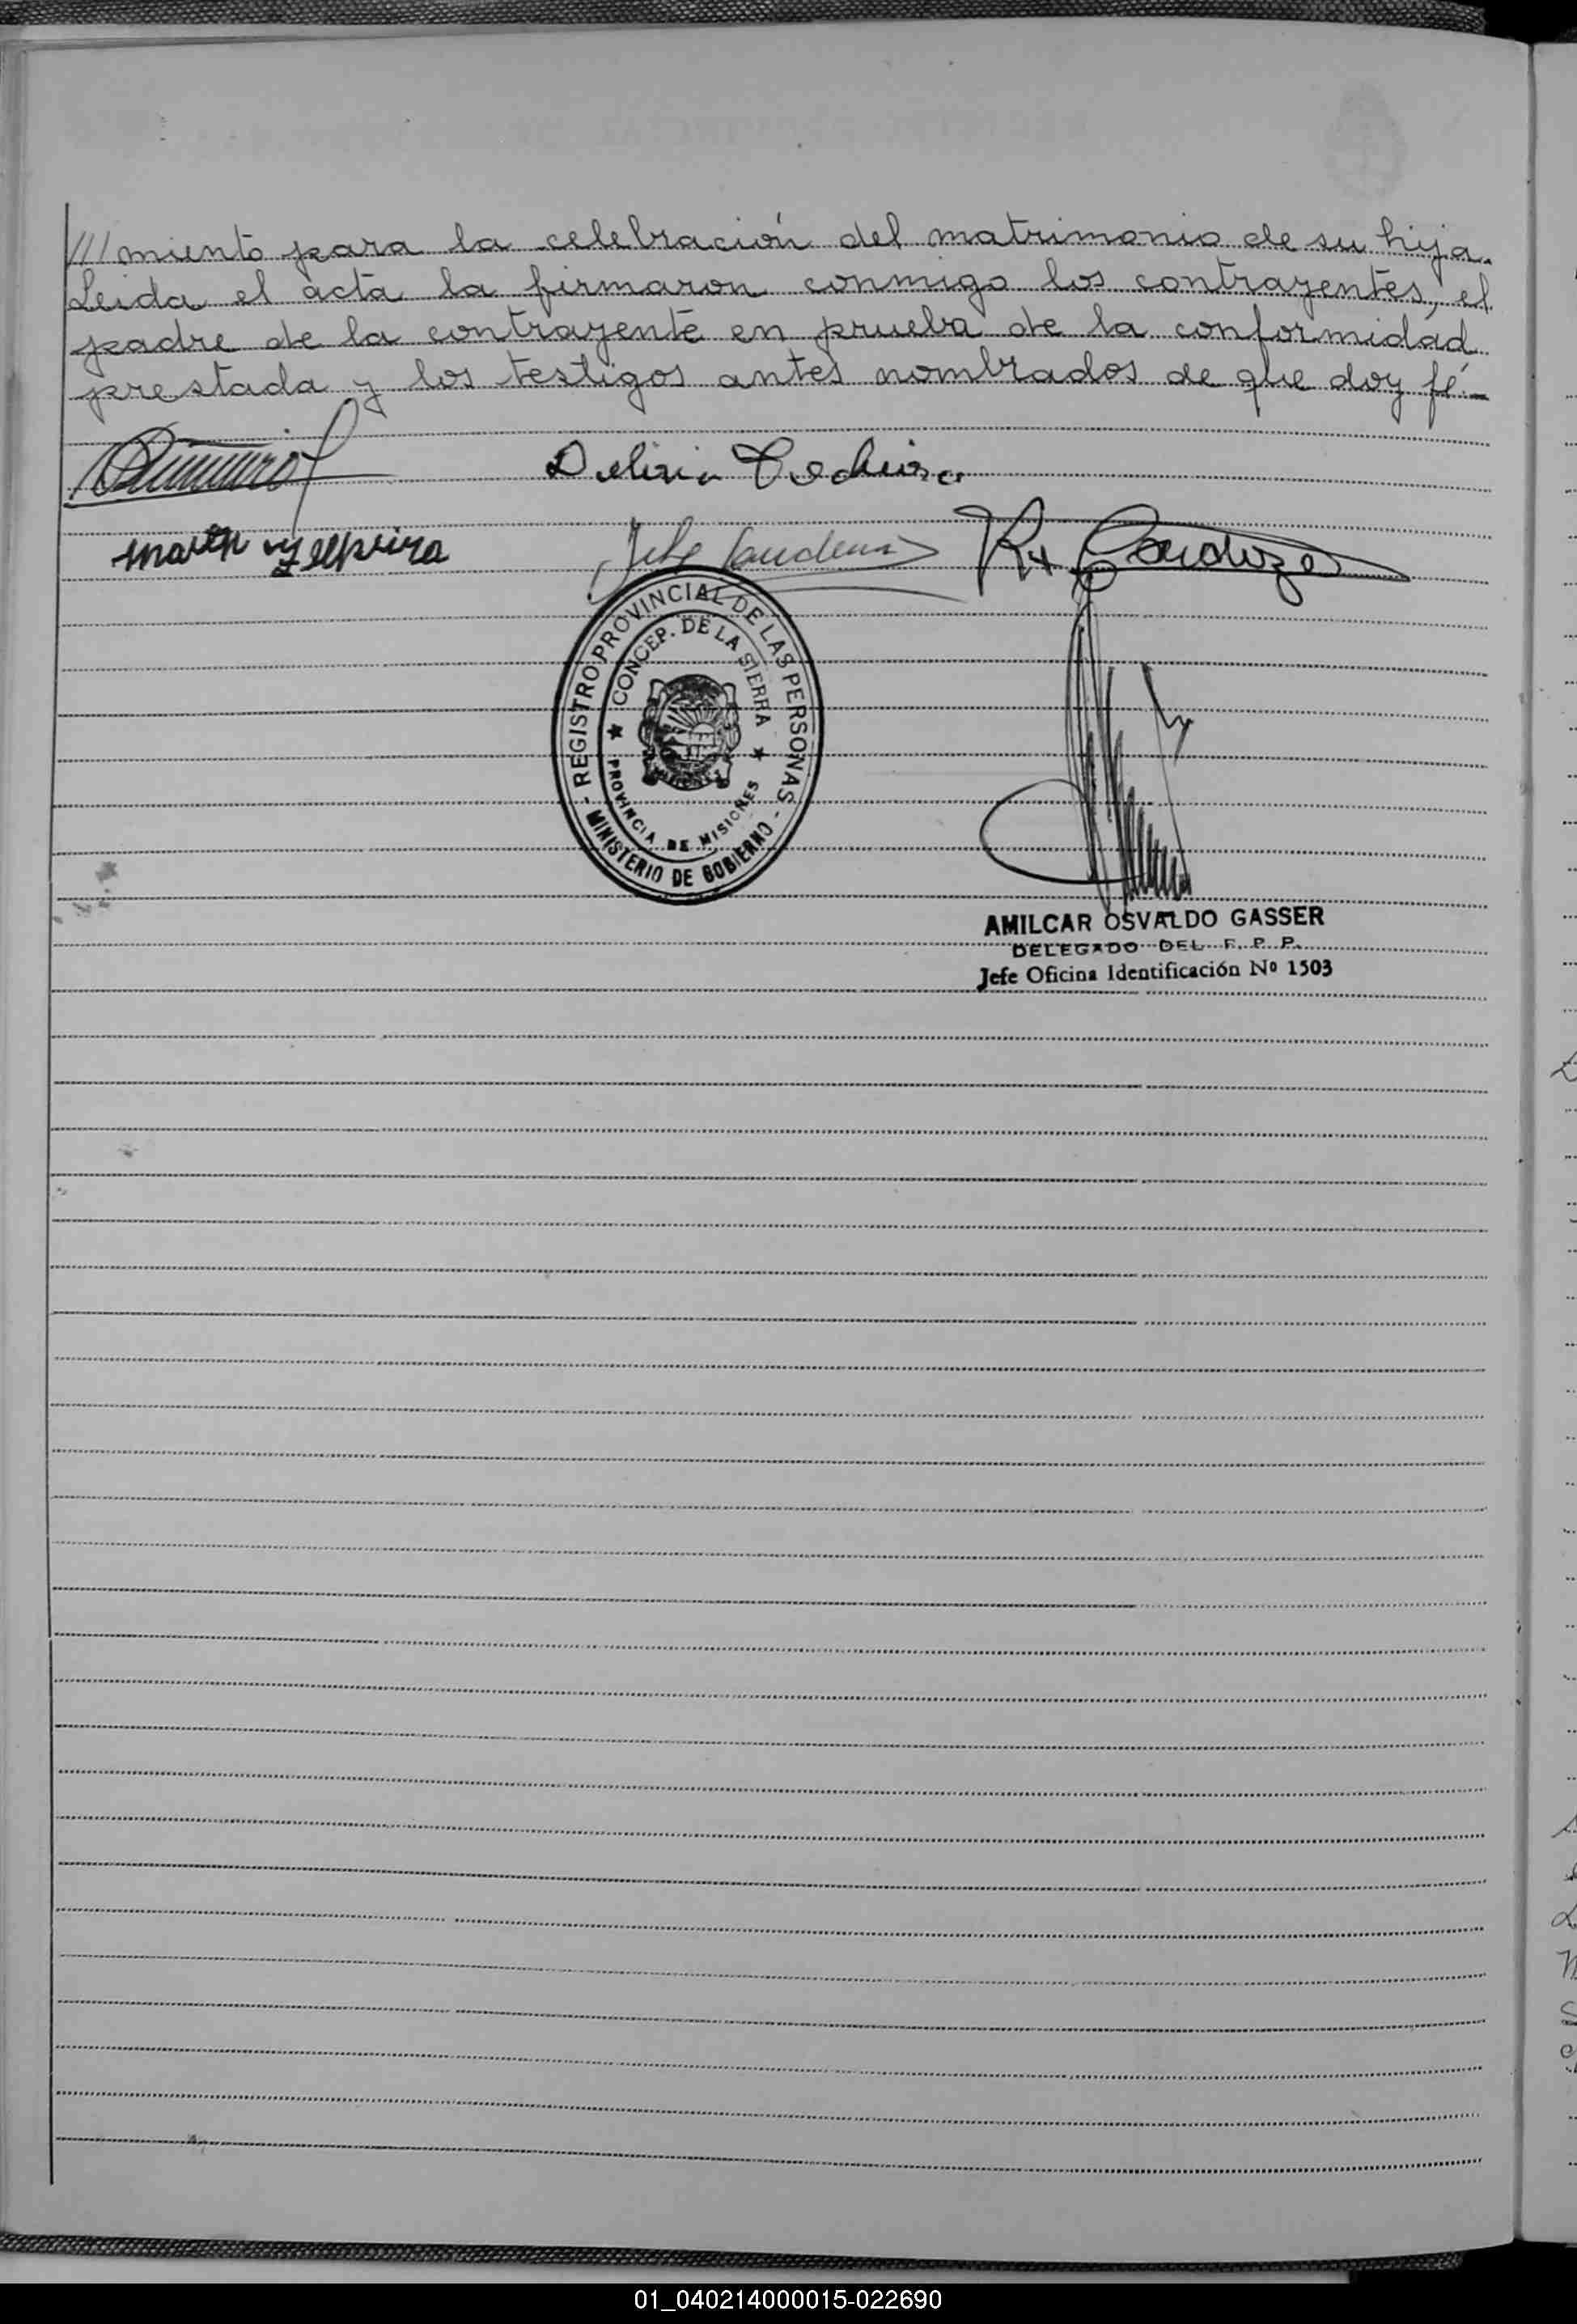 ///miento para la celebración del matrimonio de su hija.
Leida el acta la firmaron conmigo los contrayentes, el
padre de la contrayente en prueba de la conformidad
prestada y los testigos antes nombrados de que doy fé.-
Cardozo
REGISTRO PROVINCIAL DE LAS PERSONAS
- MINISTERIO DE GOBIERNO -
CONCEP. DE LA SIERRA
PROVINCIA DE MISIONES
AMILCAR OSVALDO GASSER
DELEGADO DEL R. P. P.
Jefe Oficina Identificación Nº 1503
01_040214000015-022690